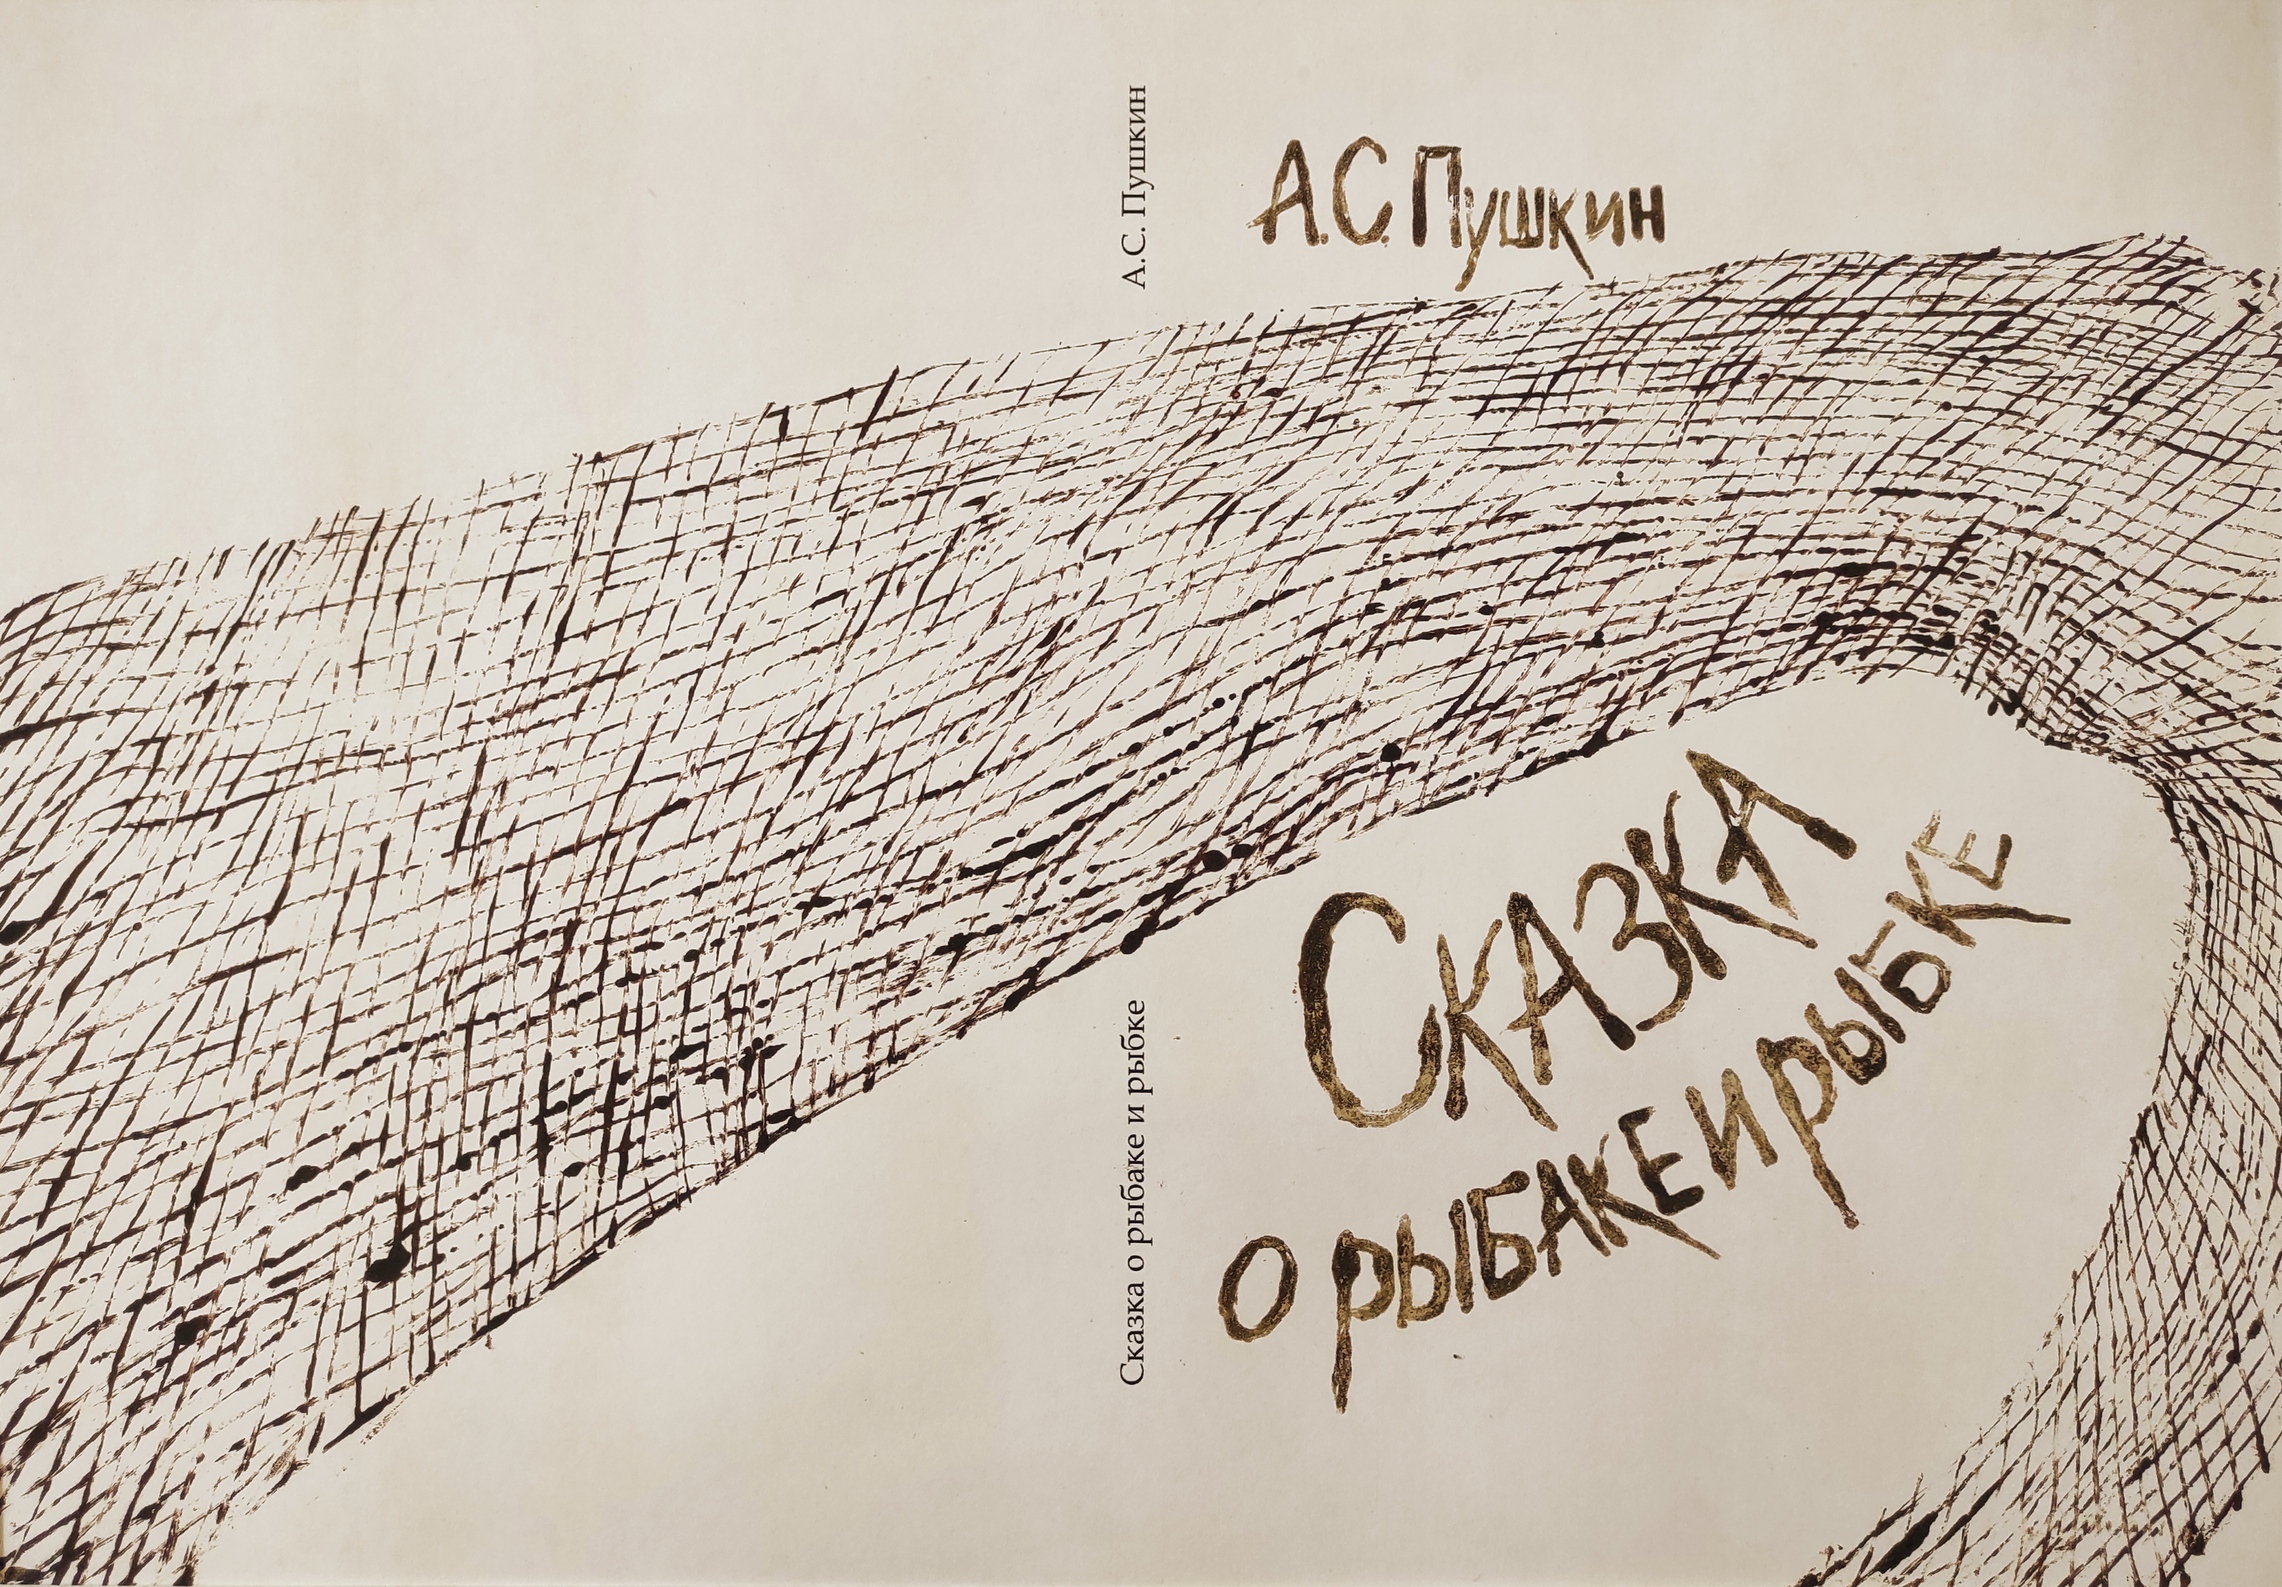 А.С. Пушкин
Сказка о рыбаке и рыбке
А.С. Пушкин
Сказка
о рыбаке и рыбке